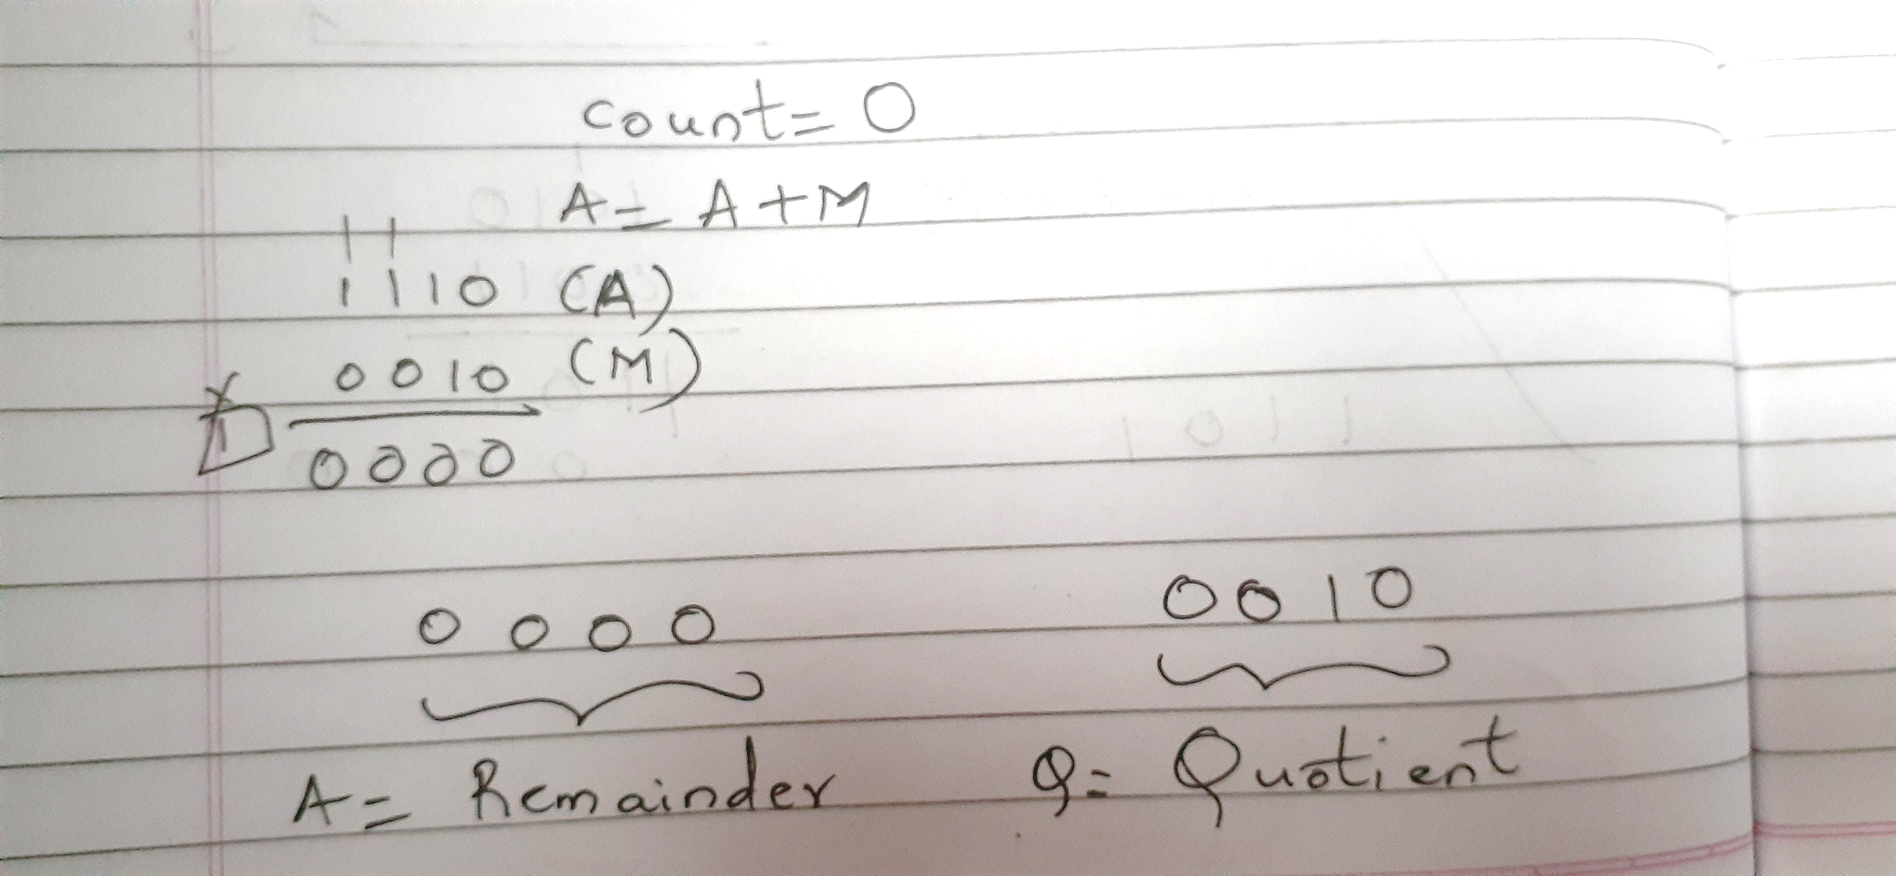 count= 0
A= A+M
1 1
1110 (A)
0010 (M)
1 0000
0000 0010
A= Remainder Q= Quotient